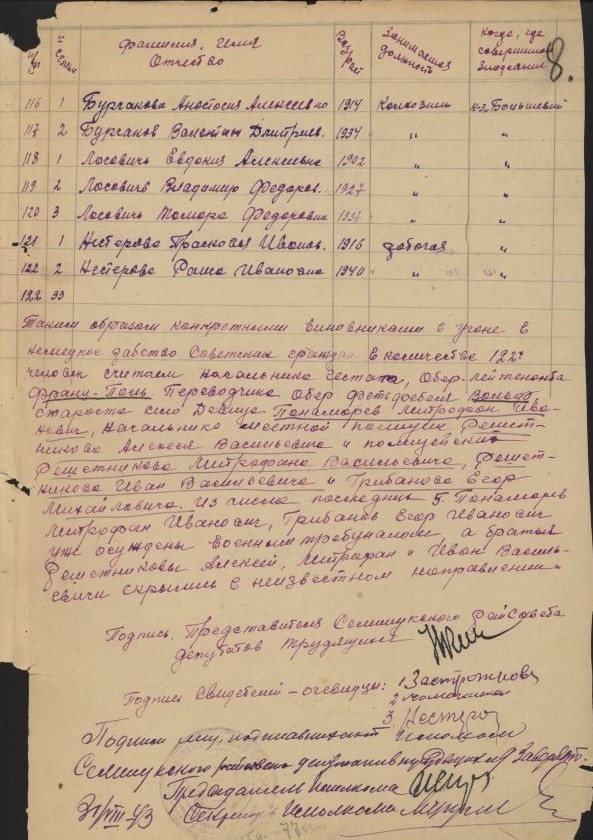 8.
№ п/п № семьи Фамилия, Имя Отчество Возраст Занимаемая должность Когда, где совершили злодеание
116 1 Бурганова Анастасия Алексеевна 1914 Колхозник к-з „Большевик"
117 2 Бурганов Валентин Дмитриев. 1934 „ „
118 1 Лосовичь Евдокия Алексеевна 1902 „ „
119 2 Лосовичь Владимир Федоров. 1927 „ „
120 3 Лосовичь Тамара Федоровна 1937 „ „
121 1 Нестерова Прасковя Иванов. 1916 рабочая „
122 2 Нестерова Раиса Ивановна 1940 „ „
122 33
Таким образом конкретными виновниками в угоне в
немецкое рабство Советских граждан в количестве 122
человек считаем начальника гестапо, Обер-лейтенанта
Франц-Поль, Переводчика Обер фельдфебеля Вольф,
староста село Девица Понаморев Митрофан Ива-
нович, Начальника местной полиции Решет-
никова Алексея Васильевича и полицейских
Решетникова Митрофана Васильевича, Решет-
никова Иван Васильевича и Грибанова Егор
Михайловича. Из числа последних Понаморев
Митрофан Иванович, Грибанов Егор Иванович
уж осуждены военным трибуналом, а братья
Решетниковы Алексей, Митрофан и Иван Василь-
евичи скрылись в неизвестном направлении.
Подпись. Представителя Семилукского РайСовета
депутатов трудящихся
Подписи Свидетелей – очевидцы: 1.
2
3. Нестеро
Подписи лиц, подписавших
Семилукского райсовета депутатов трудящихся Заверяет.
Председатель исполкома
31/VIII-43 Секретарь Исполкома